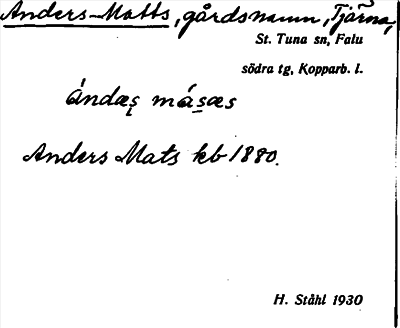 Anders-Matts, gårdsnamn, Tjärna,
St. Tuna sn, Falu
södra tg, Kopparb. l.
ándæs másæs
Anders Mats kb 1880.
H. Ståhl 1930